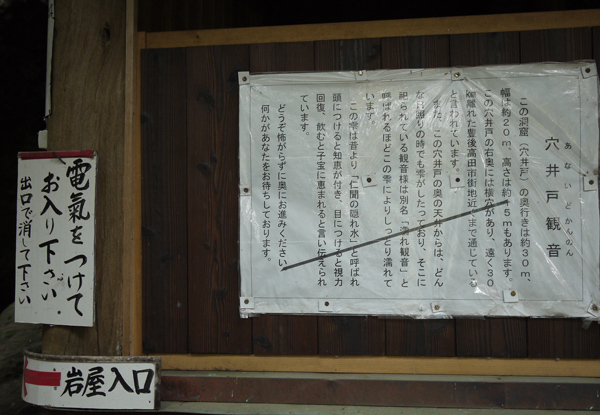 穴井戸観音
あないどかんのん
この洞窟（穴井戸）の奥行きは約３０ｍ、
幅は約２０ｍ、高さは約１５ｍもあります。
この穴井戸の右奥には横穴があり、遠く３０
㎞離れた豊後高田市街地近くまで通じている
と言われています。
また、この穴井戸の奥の天井からは、どん
な日照りの時でも雫がしたっており、そこに
祀られている観音様は別名「濡れ観音」と
呼ばれるほどこの雫によりしっとり濡れて
います。
この雫は昔より「仁聞の隠れ水」と呼ばれ
頭につけると知恵が付き、目につけると視力
回復、飲むと子宝に恵まれると言い伝えられ
ています。
どうぞ怖がらずに奥にお進みください
何かがあなたをお待ちしております。
電氣をつけて
お入り下さい
出口で消して下さい
岩屋入口